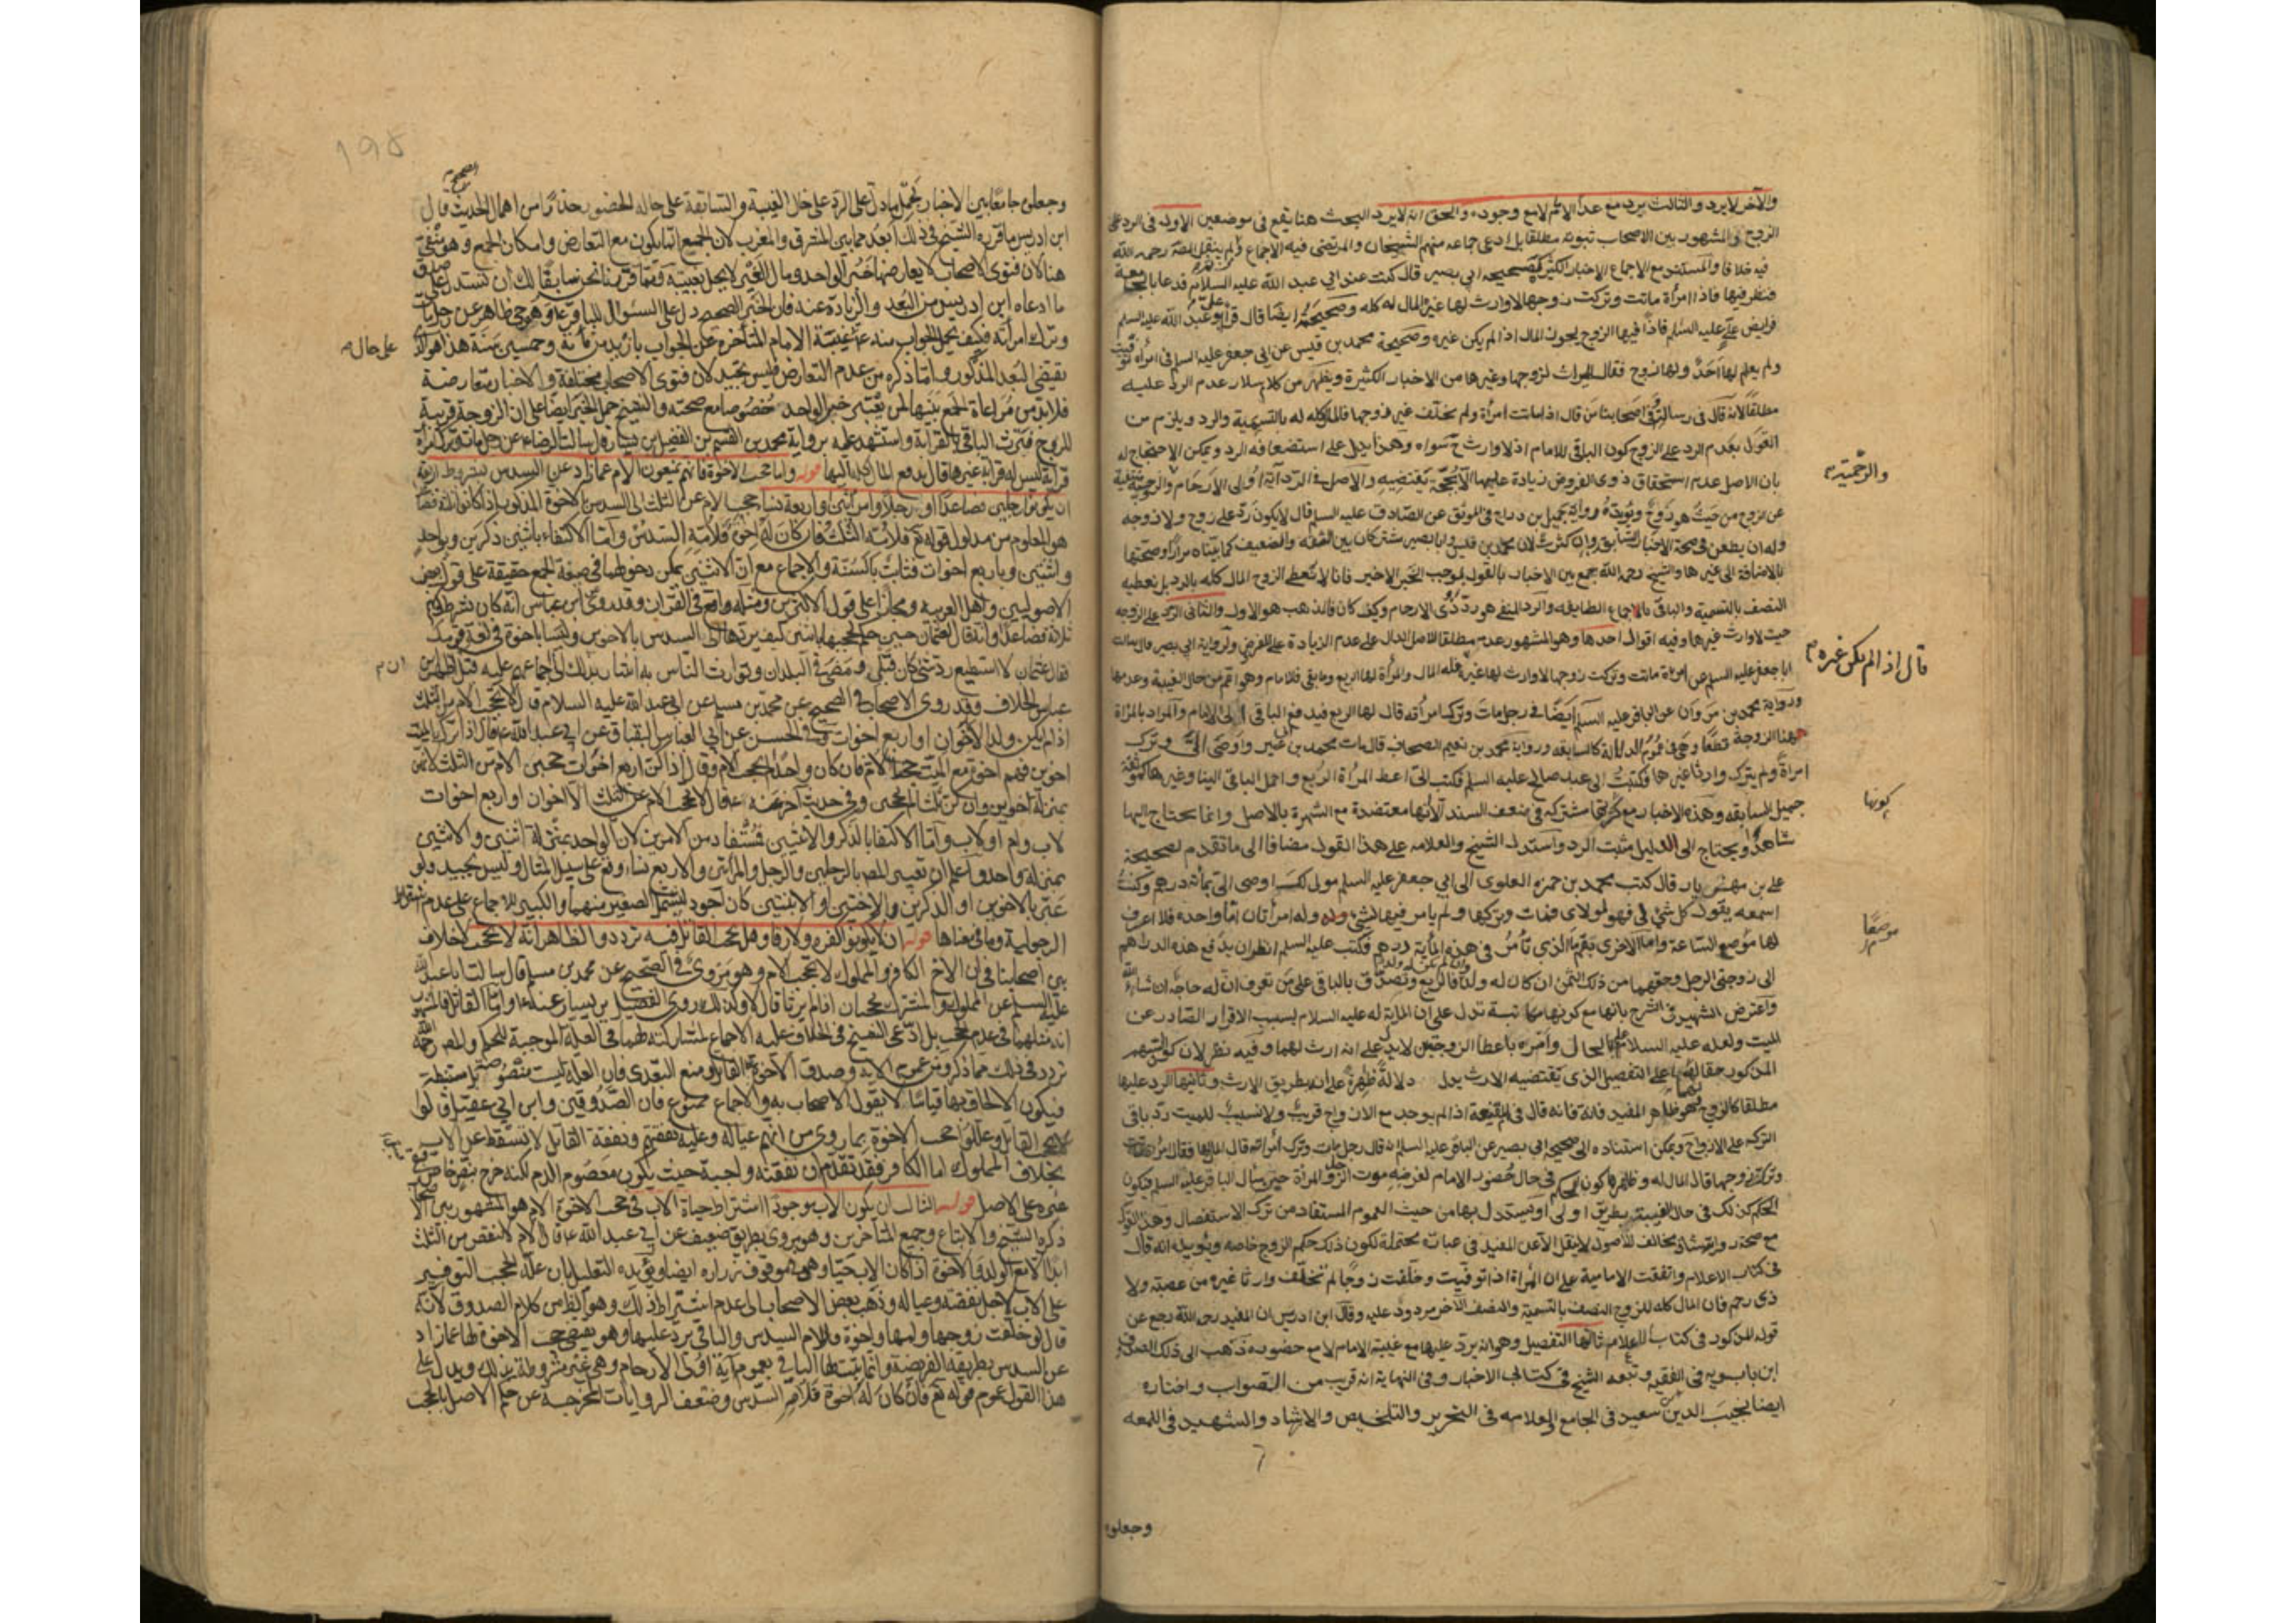 والآخر لا يرد والثالث يرد مع عدم الامام لا مع وجوده والحق انه لا يرد البحث هنا يقع في موضعين الاول في الرد على
الزوج والمشهور بين الاصحاب ثبوته مطلقا بل ادعى جماعة منهم الشيخان والمرتضى فيه الاجماع ولم ينقل المصه رحمه الله
فيه خلافا والمستند مع الاجماع الاخبار الكثيرة كصحيحة ابي بصير قال كنت عند ابي عبد الله عليه السلام فدعا بالجامعة
فنظر فيها فاذا امرأة ماتت وتركت زوجها لا وارث لها غيره المال له كله وصحيحته ايضا قال قرأ علي ابو عبد الله عليه السلم
فرايض علي عليه السلم فاذا فيها الزوج يحوز المال اذا لم يكن غيره وصحيحة محمد بن قيس عن ابي جعفر عليه السلم في امرأة توفيت
ولم يعلم لها احد ولها زوج فقال الميراث لزوجها وغيرها من الاخبار الكثيرة ويظهر من كلام سلار عدم الرد عليه
مطلقا لانه قال في رسالته وفي اصحابنا من قال اذا ماتت امرأة ولم يخلف غير زوجها فالمال كله له بالتسمية والرد ويلزم من
القول بعدم الرد على الزوج كون الباقي للامام اذ لا وارث ح سواه وهذا يدل على استضعافه الرد ويمكن الاحتجاج له
بان الاصل عدم استحقاق ذوي الفروض زيادة عليها الا بحجة تقتضيه والاصل في الرد آية اولى الارحام والرحمية منتفية
عن الزوج من حيث هو زوج ويؤيده رواية جميل بن دراج في الموثق عن الصادق عليه السلم قال لا يكون رد على زوج ولا زوجة
وله ان يطعن في صحة الاخبار السابقة وان كثرت لان محمد بن قيس وابا بصير مشتركان بين الثقة والضعيف كما بيناه مرارا وصحتها
بالاضافة الى غيرها والشيخ رحمه الله جمع بين الاخبار بالقول بموجب الخبر الاخير فانا لا نعطي الزوج المال كله بالرد بل نعطيه
النصف بالتسمية والباقي بالاجماع الطايفة والرد المنفي هو رد ذوي الارحام وكيف كان فالمذهب هو الاول والثاني الرد على الزوجة
حيث لا وارث غيرها وفيه اقوال احدها وهو المشهور عدمه مطلقا للاصل الدال على عدم الزيادة على الفرض ولرواية ابي بصير قال سالت
ابا جعفر عليه السلم عن امرأة ماتت وتركت زوجها لا وارث لها غيره فله المال والمرأة لها الربع وما بقي فللامام وهو اعم من حال الغيبة وعدمها
ورواية محمد بن مروان عن الباقر عليه السلم ايضا في رجل مات وترك امرأته قال لها الربع ويدفع الباقي الى الامام والمراد بالمراة
هنا الزوجة قطعا وهي في عموم الدلالة كالسابقه ورواية محمد بن نعيم الصحاف قال مات محمد بن ابي عمير واوصى الي وترك
امراة ولم يترك وارثا غيرها فكتبت الى عبد صالح عليه السلم فكتب الي اعط المرأة الربع واحمل الباقي الينا وغيرها كموثقة
جميل السابقه وهذه الاخبار مع كثرتها مشتركة في ضعف السند الا انها معتضدة مع الشهرة بالاصل وانما يحتاج اليها
شاهدا ويحتاج الى الدليل مثبت الرد واستدل الشيخ والعلامه على هذا القول مضافا الى ما تقدم لصحيحة
علي بن مهزيار قال كتب محمد بن حمزه العلوى الى ابي جعفر عليه السلم مولى لك اوصى الي بمائة درهم وكنت
اسمعه يقول كل شي لي فهو لمولاي فمات وتركها ولم يامر فيها بشي وله امرأتان اما واحدة فلا اعرف
لها موضع الساعة واما الاخرى بقم ما الذي تأمر في هذه المأية درهم فكتب عليه السلم انظر ان تدفع هذه الدراهم
الى زوجتي الرجل وحقهما من ذلك الثمن ان كان له ولد وان لم يكن له ولد فالربع وتصدق بالباقي على من تعرف ان له حاجة ان شاء الله
واعترض الشهيد في الشرح بانها مع كونها مكاتبة تدل على ان الماية له عليه السلام بسبب الاقرار الصادر عن
الميت ولعله عليه السلام علم بالحال وامره باعطا الزوجتين لا يدل على انه ارث لهما وفيه نظر لان كون السهم
المذكور حقا لهما على التفصيل الذي يقتضيه الارث يدل دلالة ظاهرة على انه بطريق الارث وثانيها الرد عليها
مطلقا كالزوج وهو ظاهر المفيد فانه قال في المقنعة اذا لم يوجد مع الازواج قريب ولا نسيب للميت رد باقي
التركة على الازواج ويمكن استناده الى صحيحة ابي بصير عن الباقر عليه السلم انه قال رجل مات وترك امرأته قال المال لها
الحكم كذلك في حال الغيبة بطريق اولى او يستدل بها من حيث العموم المستفاد من ترك الاستفصال وهذا القول
مع صحة روايته شاذ مخالف للاصول لا ينقل الا عن المفيد في عبارة محتملة لكون ذلك حكم الزوج خاصه ويؤيده انه قال
في كتاب الاعلام واتفقت الامامية على ان المرأة اذا توفيت وخلفت زوجا لم تخلف وارثا غيره من عصبة ولا
ذي رحم فان المال كله للزوج النصف بالتسمية والنصف الآخر مردود عليه وقال ابن ادريس ان المفيد رحمه الله رجع عن
قوله المذكور في كتاب الاعلام ثالثها التفصيل وهو انه يرد عليها مع غيبة الامام لا مع حضوره ذهب الى ذلك الصدوق
ابن بابويه في الفقيه وتبعه الشيخ في كتابي الاخبار وفي النهاية انه قريب من الصواب واختاره
ايضا نجيب الدين بن سعيد في الجامع والعلامه في التحرير والتلخيص والارشاد والشهيد في اللمعه
وجعلوه
والرحمية
قال اذا لم يكن غيره م
كونها
موضعا
١٩٥
وجعلوه جامعا بين الاخبار بحمل ما دل على الرد على حال الغيبة والسابقة على حالة الحضور حذرا من اهمال الحديث الصحيح قال
ابن ادريس ما قربه الشيخ في ذلك ابعد مما بين المشرق والمغرب لان الجمع انما يكون مع التعارض وامكان الجمع وهو منفي
هنا لان فتوى الاصحاب لا يعارضها خبر الواحد ومال الغير لا يحل بغيبته ومما قررناه نحن سابقا لك ان تستدل على صدق
ما ادعاه ابن ادريس من البعد والزيادة عنه فان الخبر الصحيح دل على السئوال للباقر ع وهو حي ظاهر عن رجل مات
وترك امرأته فكيف يحمل الجواب منه على غيبة الامام المتأخرة عن الجواب بازيد من مائة وخمسين سنة هذا هو الذي
يقتضي البعد المذكور واما ما ذكره من عدم التعارض فليس بجيد لان فتوى الاصحاب مختلفة والاخبار متعارضة
فلابد من مراعاة الجمع بينها لمن يعتبر خبر الواحد خصوصا مع صحته والشيخ حمل الخبر ايضا على ان الزوجة قريبة
للزوج فترث الباقي بالقرابة واستشهد عليه برواية محمد بن القسم بن الفضيل بن يسار قال سالت الرضا ع عن رجل مات وترك امرأة
قرابة ليس له قرابة غيرها قال يدفع المال كله اليها قوله واما حجب الاخوة فانهم يمنعون الام عما زاد عن السدس بشروط اربعة
ان يكونوا رجلين فصاعدا او رجلا وامرأتين او اربعة نساء حجب الام عن الثلث الى السدس بالاخوة المذكورين اذا كانوا ثلثة فصاعدا
هو المعلوم من مدلول قوله تع فلامه الثلث فان كان له اخوة فلامه السدس واما الاكتفاء باثنين ذكرين وبواحد
واثنتين وباربع اخوات فثابت بالسنة والاجماع مع ان الاثنين يمكن دخولها في صيغة الجمع حقيقة على قول بعض
الاصوليين واهل العربية ومجازا على قول الاكثرين ومثله واقع في القرآن وقد روي عن ابن عباس انه كان يشترط فيهم
ثلاثة فصاعدا وانه قال لعثمان حين حكم بحجبها باثنين كيف تردها الى السدس بالاخوين وليسا باخوة في لغة قومك
فقال عثمان لا استطيع رد شي كان قبلي ومضى في البلدان وتوارث الناس به اشار بذلك الى اجماعهم عليه قبل اظهار ابن
عباس الخلاف وقد روى الاصحاب في الصحيح عن محمد بن مسلم عن ابي عبد الله عليه السلام قال لا يحجب الام من الثلث
اذا لم يكن ولد الا اخوان او اربع اخوات وفي الحسن عن ابي العباس البقباق عن ابي عبد الله ع قال اذا ترك الميت
اخوين فهم اخوة مع الميت حجبا الام فان كان واحدا لم يحجب الام وقال اذا كن اربع اخوات حجبن الام من الثلث لانهن
بمنزلة اخوين وان كن ثلثا لم يحجبن وفي حديث اخر عنه ع قال لا يحجب الام عن الثلث الا اخوان او اربع اخوات
لاب وام او لاب واما الاكتفا بالذكر والانثيين فمستفاد من الامرين لان الواحد بمنزلة انثيين والانثيين
بمنزلة واحد واعلم ان تعبير المص بالرجلين والرجل والمرأتين والاربع نساء وقع على سبيل المثال وليس بجيد ولو
عبر بالاخوين او الذكرين والاختين او الانثيين كان اجود ليشمل الصغير منهما والكبير للاجماع على عدم اشتراط
الرجولية وما في معناها قوله ان لا يكونوا كفرة ولا ارقا وهل يحجب القاتل فيه تردد والظاهر انه لا يحجب لا خلاف
بين اصحابنا في ان الاخ الكافر والمملوك لا يحجب الام وهو مروي في الصحيح عن محمد بن مسلم قال سالت ابا عبد الله
عليه السلم عن المملوك والمشرك يحجبان اذا لم يرثا قال لا وكذلك روى الفضيل بن يسار عنه ع واما القاتل فالمشهور
انه مثلهما في عدم الحجب بل ادعى الشيخ في الخلاف عليه الاجماع لمشاركته لهما في العلة الموجبة للحكم والمص رحمه الله
تردد في ذلك مما ذكر ومن عموم الاية وصدق الاخوة على القاتل ومنع التعدي فان العلة ليست منصوصة بل مستنبطة
فيكون الالحاق بها قياسا لا يقول الاصحاب به والاجماع ممنوع فان الصدوقين وابن ابي عقيل قالوا
يحجب القاتل وعللوا حجب الاخوة بما روى من انهم عياله وعليه نفقتهم ونفقة القاتل لا تسقط عن الاب
بخلاف المملوك اما الكافر فقد تقدم ان نفقته واجبة حيث يكون معصوم الدم لكنه خرج بنص خاص فبقي
غيره على الاصل قوله الثالث ان يكون الاب موجودا اشتراط حياة الاب في حجب الاخوة الام هو المشهور بين الاصحاب
ذكره الشيخ والاتباع وجميع المتأخرين وهو مروى بطريق ضعيف عن ابي عبد الله ع قال الام لا تنقص من الثلث
ابدا الا مع الولد والاخوة اذا كان الاب حيا وهي موقوفة زراره ايضا ويؤيده التعليل بان علة الحجب التوفير
على الاب لاجل نفقته وعياله وذهب بعض الاصحاب الى عدم اشتراط ذلك وهو الظاهر من كلام الصدوق لانه
قال لو خلفت زوجها وامها واخوة فللام السدس والباقي يرد عليها وهو يقتضي حجب الاخوة لها عما زاد
عن السدس بطريقة الفريضة وانما يثبت لها الباقي بعموم آية اولى الارحام وهي غير مشروطة بذلك ويدل على
هذا القول عموم قوله تع فان كان له اخوة فلامه السدس وضعف الروايات المخرجة عن حكم الاصل بالحجب
على حال م
ان م